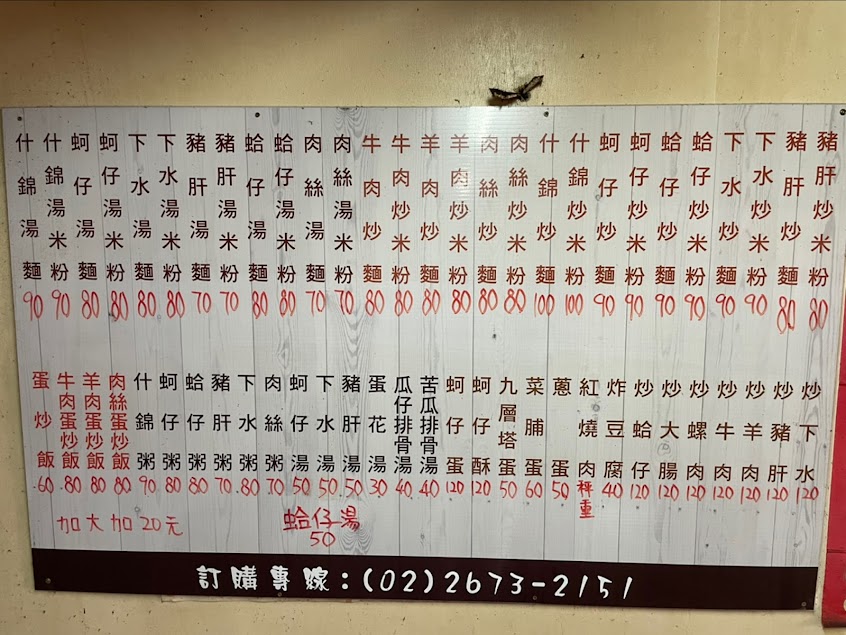 什錦湯麵 90
什錦湯米粉 90
蚵仔湯麵 80
蚵仔湯米粉 80
下水湯麵 80
下水湯米粉 80
豬肝湯麵 70
豬肝湯米粉 70
蛤仔湯麵 80
蛤仔湯米粉 80
肉絲湯麵 70
肉絲湯米粉 70
牛肉炒麵 80
牛肉炒米粉 80
羊肉炒麵 80
羊肉炒米粉 80
肉絲炒麵 80
肉絲炒米粉 80
什錦炒麵 100
什錦炒米粉 100
蚵仔炒麵 90
蚵仔炒米粉 90
蛤仔炒麵 90
蛤仔炒米粉 90
下水炒麵 90
下水炒米粉 90
豬肝炒麵 80
豬肝炒米粉 80
蛋炒飯 60
牛肉蛋炒飯 80
羊肉蛋炒飯 80
肉絲蛋炒飯 80
什錦粥 90
蚵仔粥 80
蛤仔粥 80
豬肝粥 70
下水粥 80
肉絲粥 70
蚵仔湯 50
下水湯 50
豬肝湯 50
蛋花湯 30
瓜仔排骨湯 40
苦瓜排骨湯 40
蚵仔蛋 120
蚵仔酥 120
九層塔蛋 50
菜脯蛋 60
蔥蛋 50
紅燒肉 秤重
炸豆腐 40
炒蛤仔 120
炒大腸 120
炒螺肉 120
炒牛肉 120
炒羊肉 120
炒豬肝 120
炒下水 120
加大加20元
蛤仔湯
50
訂購專線：(02)2673-2151